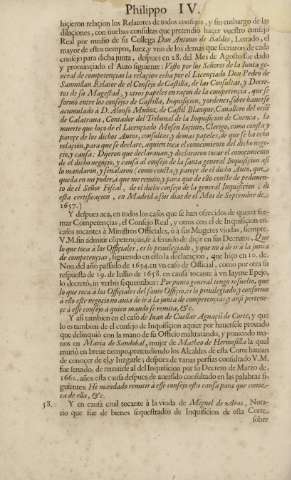 Philippo IV.
hizieron relacion los Relatores de todos consejos, y sin embargo de las
dilaciones, con muchas consultas que pretendió hazer vuestro consejo
Real por medio de su Collega Don Antonio de Valdés, Letrado, el
mayor de estos tiempos, luzca, y uno de los demas que sacaron de cada
consejo para dicha junta, despues en 28. del Mes de Agosto se dió
y pronunciado el Auto siguiente: Visto por los Señores de la Junta ge-
neral de competencias la relacion echa por el Licenciado Don Pedro de
Samullan Relator de el Consejo de Castilla, de las Consultas, y Decre-
tos de su Magestad, y otros papeles en razon de la competencia, que se
formó entre los consejos de Castilla, Inquisicion, y ordenes, sobre haverse
acumulado a D. Alonso Muñoz, de Castil Blanque, Cavallero del orden
de Calatrava, Contador del Tribunal de la Inquisicion de Cuenca, la
muerte que hizo de el Licenciado Maseo Iayme, Clerigo, como consta y
parece de los dichos Autos, consultas, y demas papeles, de que se hizo esta
relacion, para que se declare, a quien toca el conocimiento del dicho nego-
cio, y causa: Dijeron que declaravan, y declararon tocar el conocimiento
de el dicho negocio, y causa al consejo de la santa general Inquisicion assi
lo mandaron, y señalaron (como consta, y parece de el dicho Auto, que
queda en mi poder, a que me remito, y para que de ello conste de pedimen-
to de el Señor Fiscal, de el dicho consejo de la general Inquisicion, di
esta certificacion, en Madrid a seis dias de el Mes de Septiembre de
1657.)
Y despues acá, en todos los casos que se han ofrecido de querer for-
mar Competencias, el Consejo Real, y otros con el de Inquisicion en ca-
sos tocantes à Ministros Officiales, ò à sus Mugeres viudas, siempre,
V.M. sin admitir competencias, se à servido de dezir en sus Decretos, Que
lo que toca a los Officiales, es lo privilegiado, y que no à de ir à la junta
de competencias, siguiendo en ello la declaracion, que hizo en 10. de
Nov. del año passado de 1634. en va caso de Official, como por otra su
respuesta de 19. de Iulio de 1656. en causa tocante à un Iayme Espejo,
lo decretó, in verbis sequentibus: Por punto general tengo resuelto, que
lo que toca a los Officiales del Santo Officio, es lo privilegiado, y conforme
à ello este negocio no avia de ir à la junta de competencias, y assi pertene-
ce à esse consejo à quien mando se remita, &c.
Y assi tambien en el caso de Iuan de Cuellar Aguazil de Corte, y que
lo es tambien de el consejo de Inquisicion aquer por haversele provado
que delinquió con la mano de su Officio maltratando, y ponciendo ma-
nos en Maria de Sandobal, muger de Matheo de Hermosilla la qual
murió en breve tiempo, pretendiendo los Alcaldes de esta Corte huvian
de conocer de esse Irregular, despues de varias porfias consultado V.M.
fue servido, de remitirle al del Inquisicion por su Decreto de Marzo de
1661. años esta causa despues de averselo consultado en las palabras si-
guientes. He mandado remitir à esse consejo esta causa para que conoz-
ca de ella, &c.
38. Y en causa civil tocante à la viuda de Miguel de Nebras, Nota-
rio que fue de bienes sequestrados de Inquisicion de esta Corte,
sobre